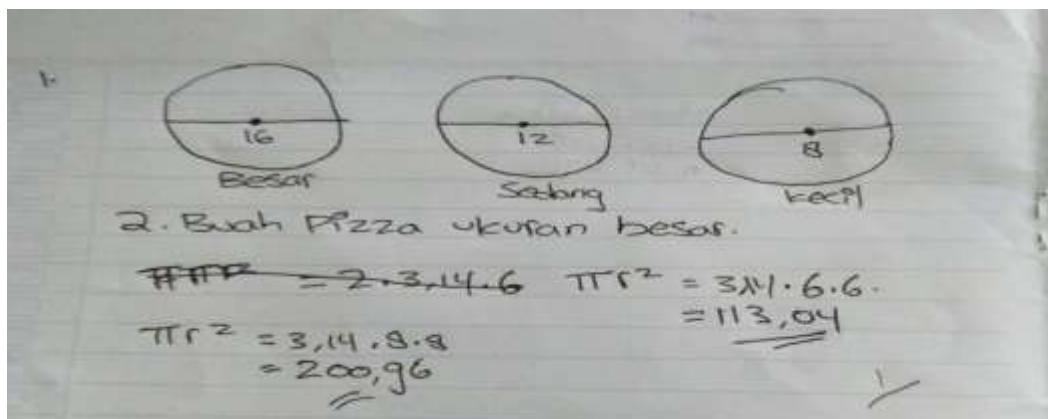 1.
16 12 8
Besar Sedang kecil
2. Buah Pizza ukuran besar.
= 2.3,14.6 πr² = 3,14.6.6.
= 113,04
πr² = 3,14.8.8
= 200,96